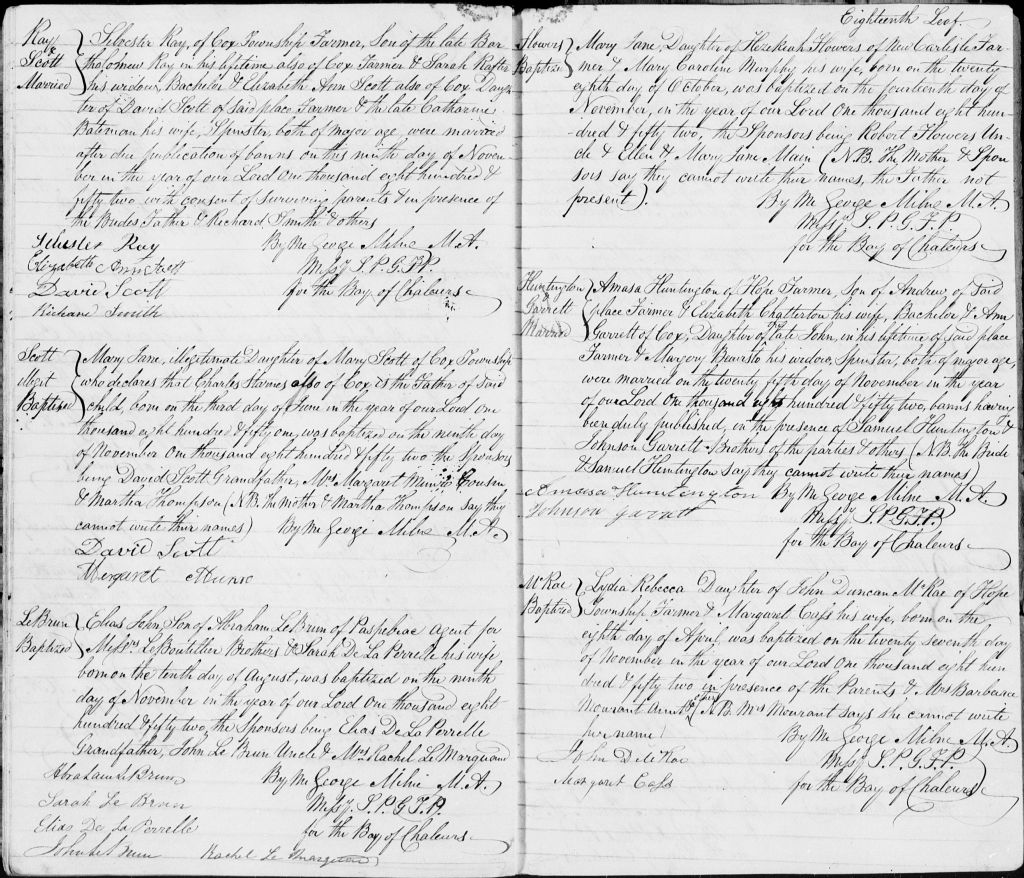 Ray & Scott Married
Silvester Ray, of Cox Township Farmer, Son of the late Bar-
tholomew Ray in his lifetime also of Cox Farmer & Sarah Rafter
his widow, Bachelor & Elizabeth Ann Scott also of Cox Daugh-
ter of David Scott of said place Farmer & the late Catharine
Bateman his wife, Spinster, both of major age, were married
after due publication of banns on this ninth day of Novem-
ber in the year of our Lord One thousand eight hundred &
fifty two with consent of surviving parents & in presence of
the Brides Father & Richard Smith & others
Silvester Ray By Me George Milne M.A.
Elizabeth Ann Scott Missy S.P.G.F.P.
David Scott for the Bay of Chaleurs
Richard Smith
Scott illegit Baptized
Mary Jane, illegitimate Daughter of Mary Scott of Cox Township
who declares that Charles Starnes also of Cox is the Father of said
child, born on the third day of June in the year of our Lord one
thousand eight hundred & fifty one, was baptized on the ninth day
of November One thousand eight hundred & fifty two the Sponsors
being David Scott Grandfather, Mrs Margaret Cousin
& Martha Thompson (N.B. The Mother & Martha Thompson say they
cannot write their names) By Me George Milne M.A.
David Scott
Margaret
LeBrun Baptized
Elias John Son of Abraham LeBrun of Paspebiac Agent for
Messrs LeBoutillier Brothers & Sarah De La Perrelle his wife
born on the tenth day of August, was baptized on the ninth
day of November in the year of our Lord One thousand eight
hundred & fifty two, the Sponsors being Elias De La Perrelle
Grandfather, John Le Brun Uncle & Mrs Rachel Le Marquand
Abraham Le Brun By Me George Milne M.A.
Sarah Le Brun Missy S.P.G.F.P.
Elias De La Perrelle for the Bay of Chaleurs
John Le Brun Rachel Le
Eighteenth Leaf
Flowers Baptized
Mary Jane, Daughter of Hezekeah Flowers of New Carlisle Far-
mer & Mary Caroline Murphy his wife, born on the twenty
eighth day of October, was baptized on the fourteenth day of
November, in the year of our Lord One thousand eight hun-
dred & fifty two, the Sponsors being Robert Flowers Un-
cle & Ellen & Mary Jane Main (N.B. The Mother & Spon-
sors say they cannot write their names, the Father not
present). By Me George Milne M.A.
Missy S.P.G.F.P.
for the Bay of Chaleurs
Huntington & Garrett Married
Amasa Huntington of Hope Farmer, Son of Andrew, of said
place Farmer & Elizabeth Chatterton his wife, Bachelor & Ann
Garrett of Cox, Daughter of the late John, in his lifetime of said place
Farmer & Margery his widow, Spinster, both of major age,
were married on the twenty fifth day of November in the year
of our Lord One thousand eight hundred & fifty two, banns having
been duly published, in the presence of Samuel Huntington &
Johnson Garrett Brothers of the parties & others (N.B. The Bride
& Samuel Huntington say they cannot write their names)
Amasa Huntington By Me George Milne M.A.
Johnson Garrett Missy S.P.G.F.P.
for the Bay of Chaleurs
McRae Baptized
Lydia Rebecca Daughter of John Duncan McRae of Hope
Township Farmer & Margaret Cass his wife, born on the
eighth day of April was baptized on the twenty seventh day
of November in the year of our Lord One thousand eight hun-
dred & fifty two in presence of the Parents & Mrs
Mourant Aunt N.B. Mrs Mourant says she cannot write
her name) By Me George Milne M.A.
John Rae Missy S.P.G.F.P.
Margaret Cass for the Bay of Chaleurs